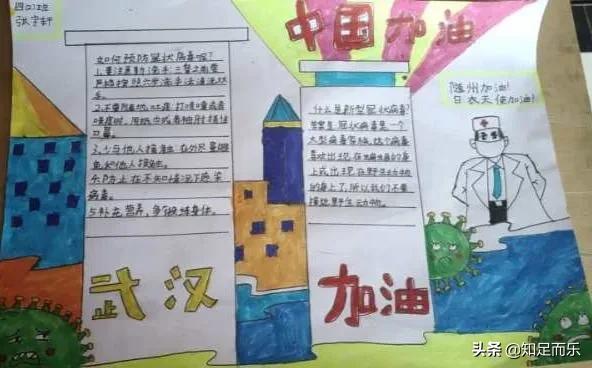 四(2)班
张宇轩
中国加油
如何预防冠状病毒呢?
1.要注意勤洗手,三餐之前要
严格按照六步洗手法清洗双
手。
2.不要随地吐痰,打喷嚏或者
咳嗽时,用纸巾或者袖肘捂住
口鼻。
3.少与他人接触,在外尽量避
免和他人接触。
4.防止在不知情况下感染
病毒。
5.补充营养,多锻炼身体。
武汉
什么是新型冠状病毒?
答案:冠状病毒是一个
大型病毒家族,这个病毒
喜欢出现在
上或出现在野生动物
的身上了,所以我们不要
接触野生动物。
加油
随州加油!
白衣天使加油!
头条 @知足而乐